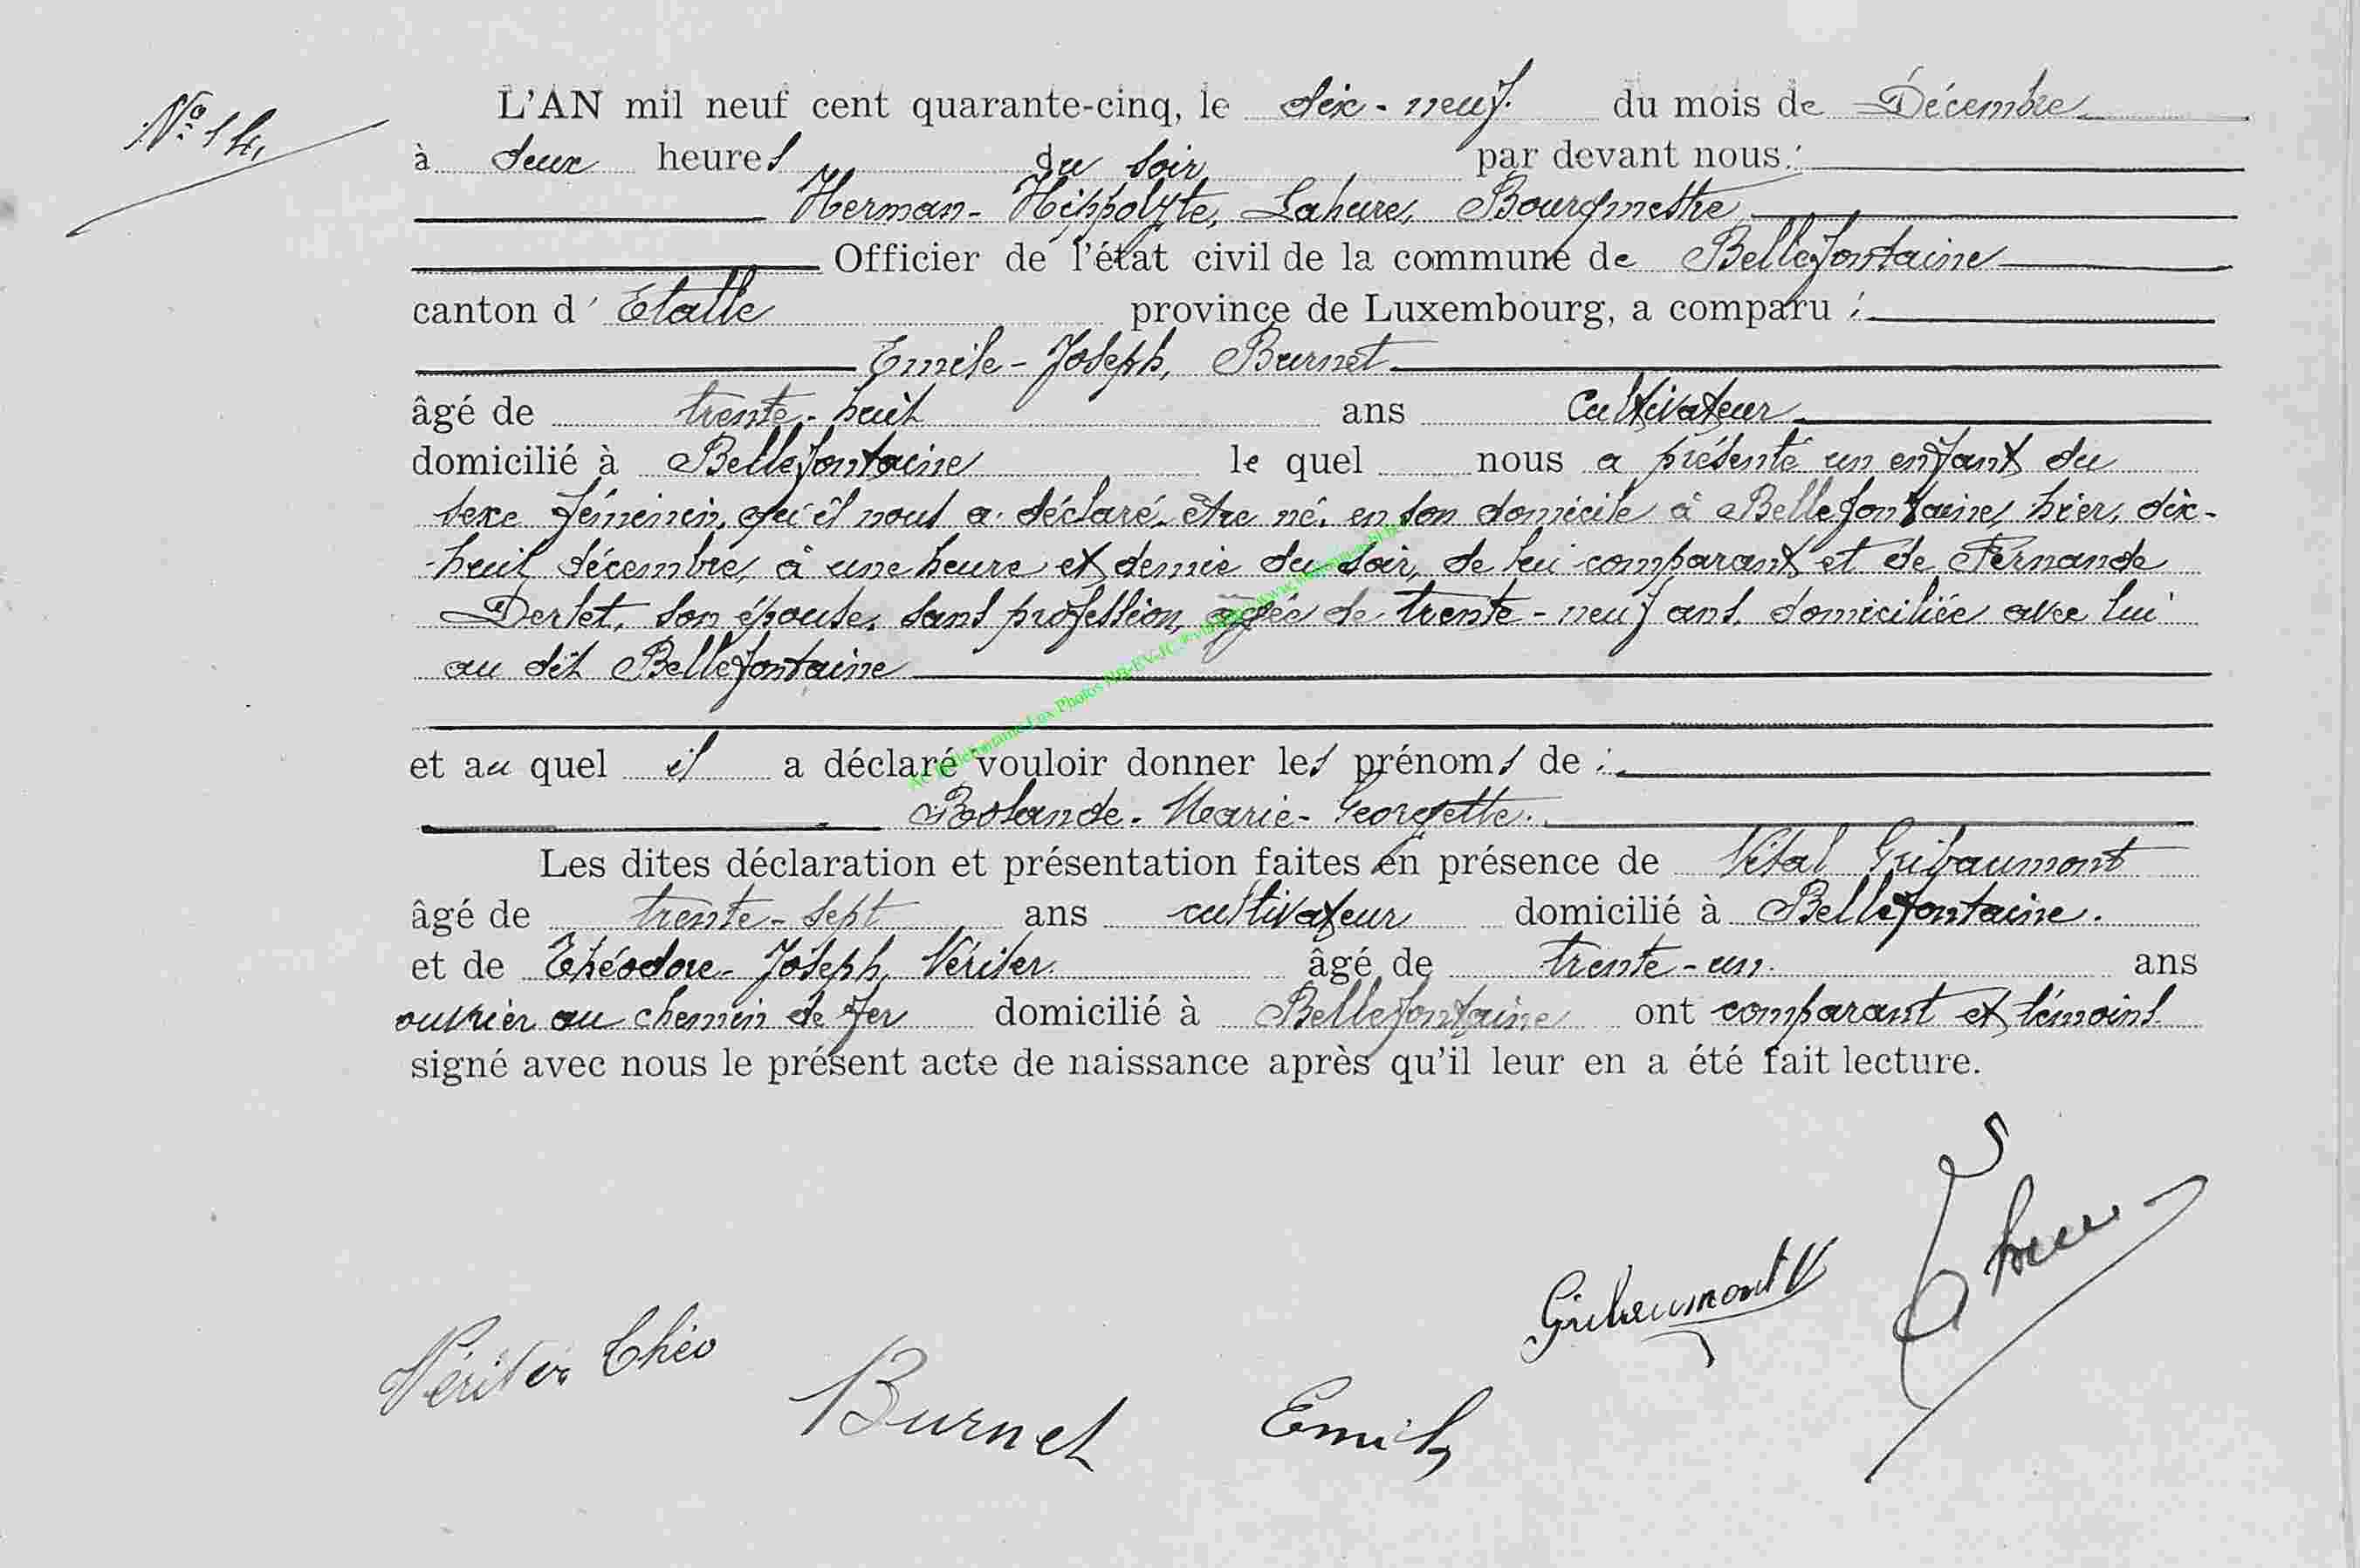 N° 14.
L'AN mil neuf cent quarante-cinq, le dix-neuf. du mois de Décembre
à deux heures du soir par devant nous:
Herman-Hippolyte, Lahure, Bourgmestre
Officier de l'état civil de la commune de Bellefontaine
canton d' Etalle province de Luxembourg, a comparu :
Emile-Joseph, Burnet
âgé de trente-huit ans Cultivateur
domicilié à Bellefontaine le quel nous a présenté un enfant du
sexe féminin, qu'il nous a déclaré être né, en son domicile à Bellefontaine, hier, dix-
-huit décembre, à une heure et demie du soir, de lui comparant et de Fernande
Derlet, son épouse, sans profession, agée de trente-neuf ans, domiciliée avec lui
au dit Bellefontaine
et au quel il a déclaré vouloir donner les prénoms de :
Rolande-Marie-Georgette.
Les dites déclaration et présentation faites en présence de Vital Gribaumont
âgé de trente-sept ans cultivateur domicilié à Bellefontaine.
et de Théodore-Joseph, Vériter âgé de trente-un. ans
ouvrier au chemin de fer domicilié à Bellefontaine ont comparant et témoins
signé avec nous le présent acte de naissance après qu'il leur en a été fait lecture.
Gribaumont V
Vériter Théo
Burnet Emile